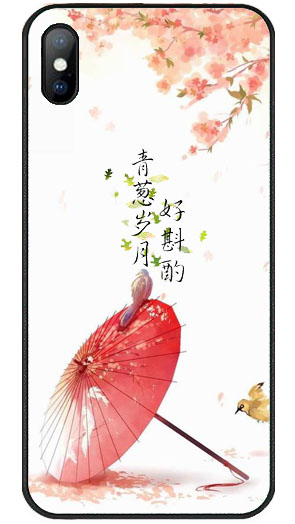 青葱岁月
好斟酌